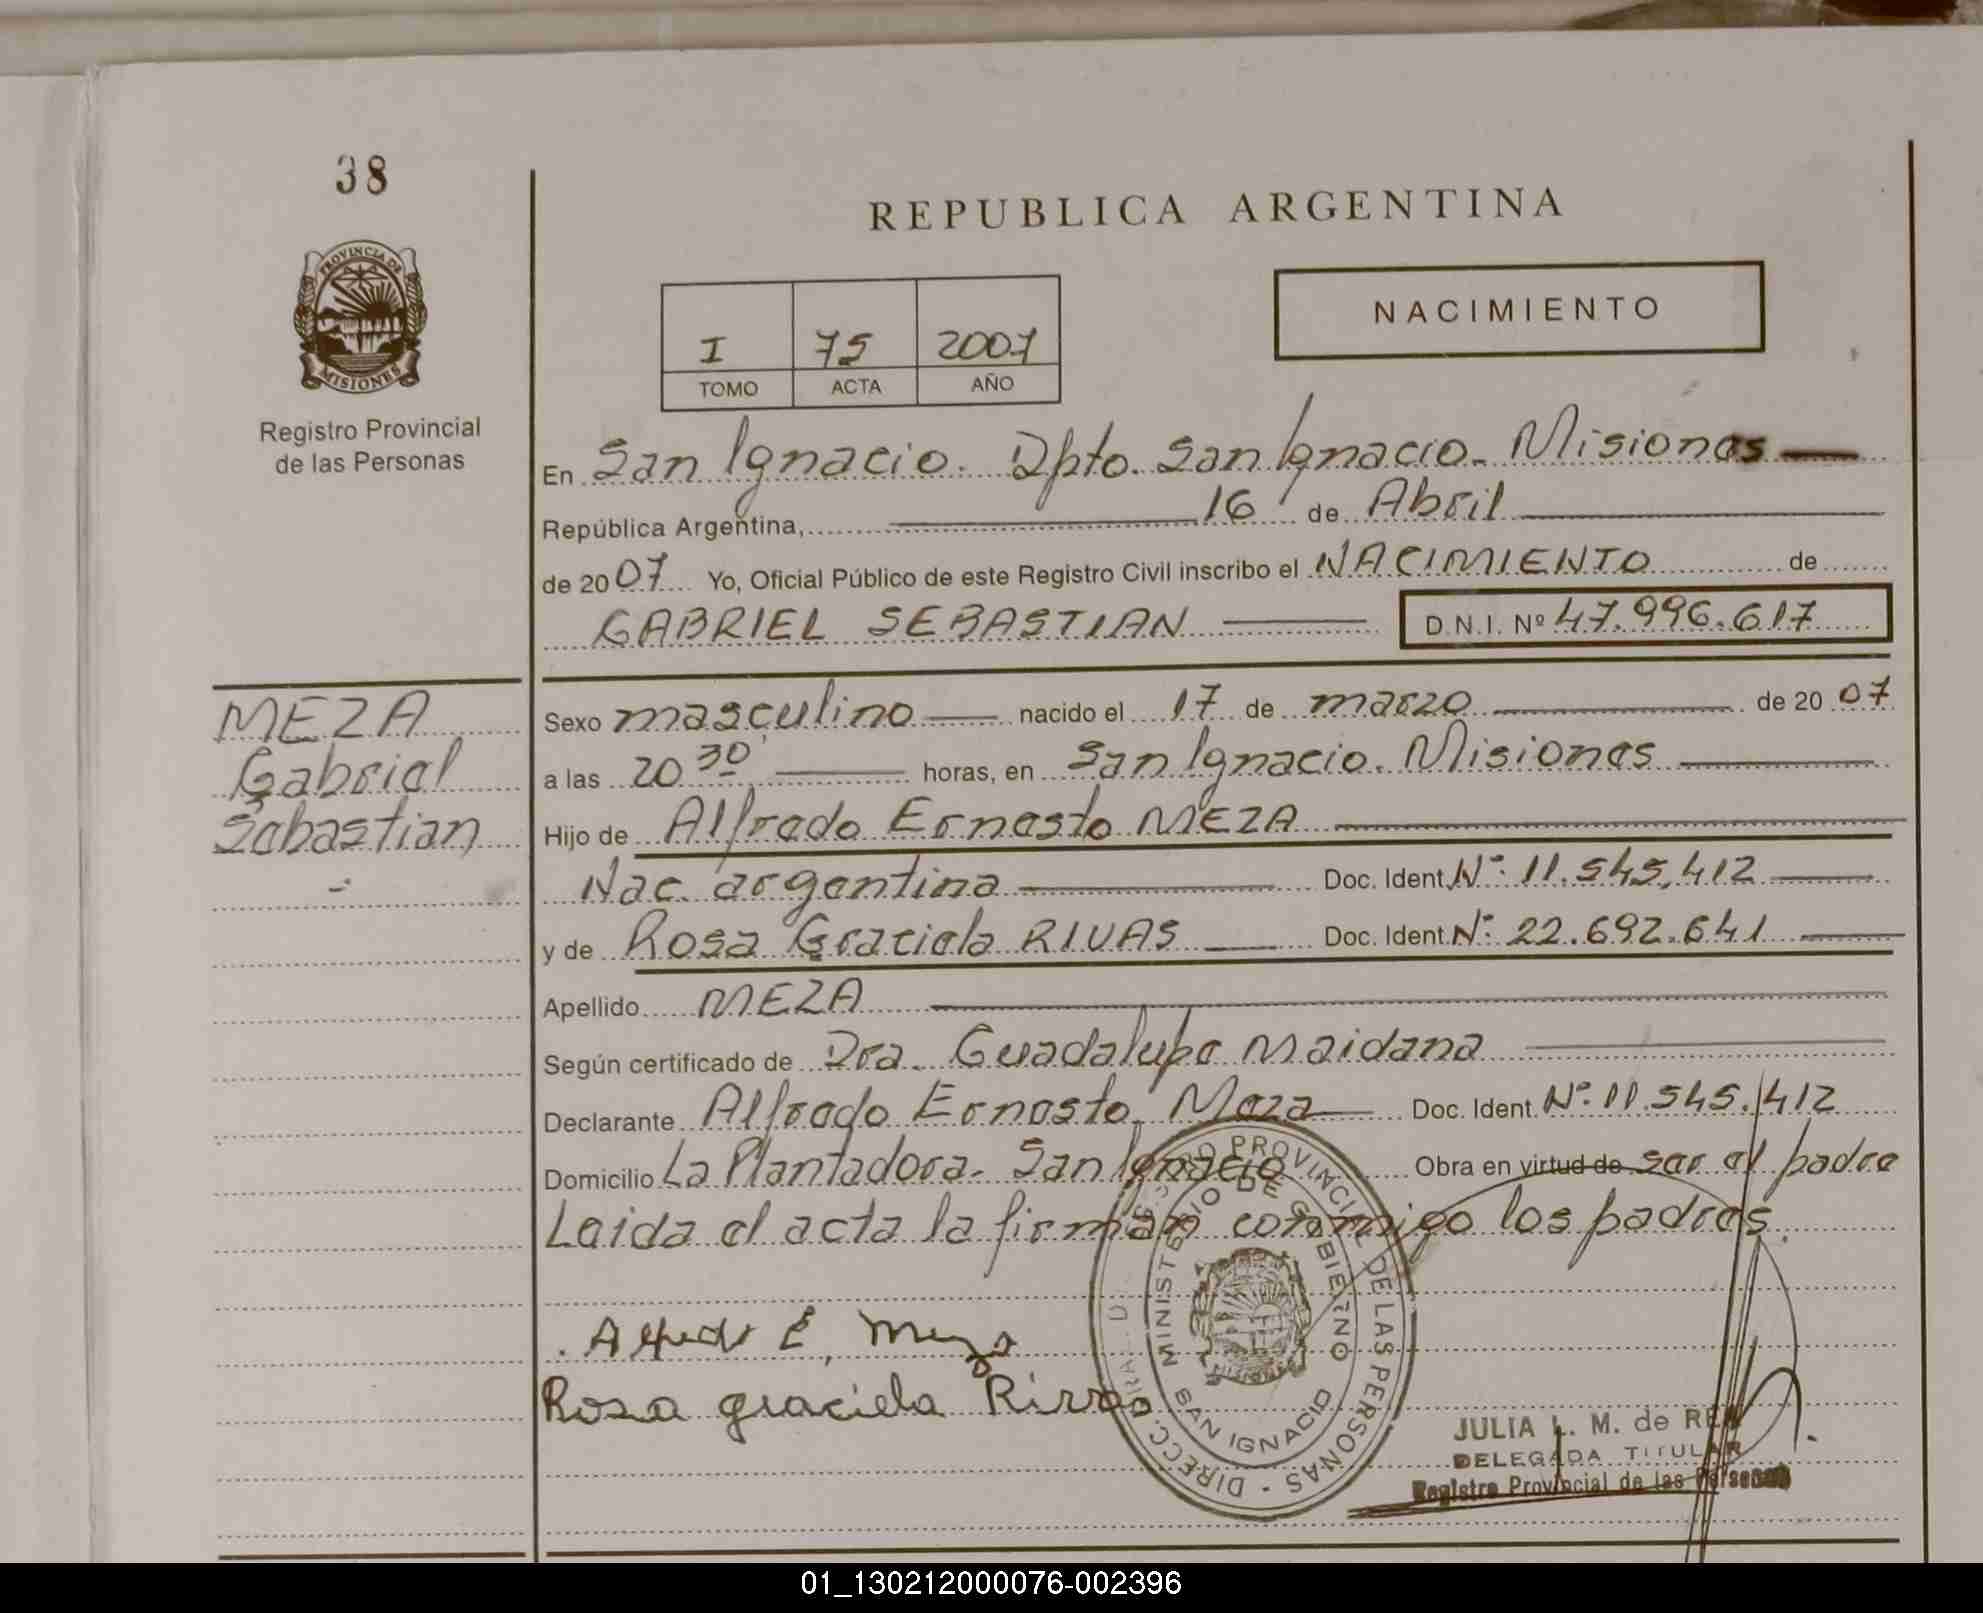 38
PROVINCIA DE
MISIONES
Registro Provincial
de las Personas
REPUBLICA ARGENTINA
I 75 2007
TOMO ACTA AÑO
NACIMIENTO
En San Ignacio. Dpto. San Ignacio. Misiones
República Argentina, 16 de Abril
de 2007 Yo, Oficial Público de este Registro Civil inscribo el NACIMIENTO de
GABRIEL SEBASTIAN D.N.I. Nº 47.996.617
MEZA
Gabriel
Sebastian
Sexo masculino nacido el 17 de marzo de 2007
a las 20 30 horas, en San Ignacio. Misiones
Hijo de Alfredo Ernesto MEZA
Nac. argentina Doc. Ident. Nº 11.545.412
y de Rosa Graciela RIVAS Doc. Ident. Nº 22.692.641
Apellido MEZA
Según certificado de Dra. Guadalupe Maidana
Declarante Alfredo Ernesto Meza Doc. Ident. Nº 11.545.412
Domicilio La Plantadora. San Ignacio Obra en virtud de ser el padre
Leida el acta la firman conmigo los padres.
Alfredo E, Meza
Rosa graciela Rivas
PROVINCIAL DE LAS PERSONAS
MINISTERIO DE GOBIERNO
SAN IGNACIO
JULIA L. M. de
DELEGADA TITULAR
Registro Provincial de las Personas
01_130212000076-002396